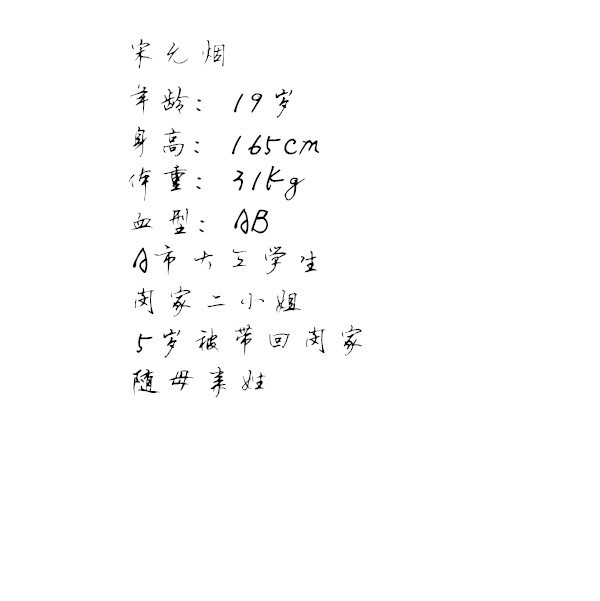 宋允烟
年龄：19岁
身高：165cm
体重：31Kg
血型：AB
A市大三学生
闵家二小姐
5岁被带回闵家
随母亲姓